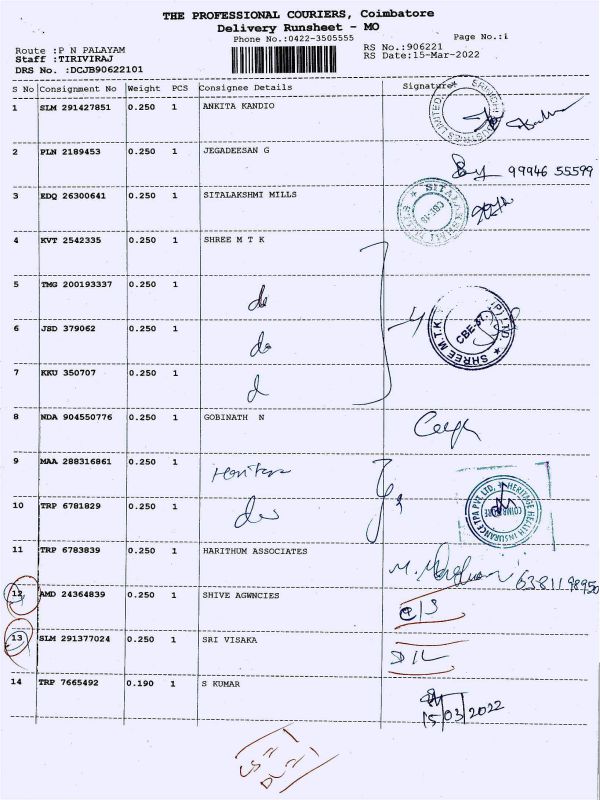 THE PROFESSIONAL COURIERS, Coimbatore
Delivery Runsheet - MO
Phone No.:0422-3505555
Page No.:1
Route :P N PALAYAM
RS No.:906221
Staff :TIRIVIRAJ
RS Date:15-Mar-2022
DRS No. :DCJB90622101
S No Consignment No Weight PCS Consignee Details Signature
1 SLM 291427851 0.250 1 ANKITA KANDIO
2 PLN 2189453 0.250 1 JEGADEESAN G 99946 55599
3 EDQ 26300641 0.250 1 SITALAKSHMI MILLS
SITALAKSHMI MILLS
4 KVT 2542335 0.250 1 SHREE M T K
5 TMG 200193337 0.250 1 do
6 JSD 379062 0.250 1 do
SHREE M.T.K. (P) LTD. CBE-37.
7 KKU 350707 0.250 1
8 NDA 904550776 0.250 1 GOBINATH N
9 MAA 288316861 0.250 1 Heritage
HERITAGE HEALTH INSURANCE TPA PVT LTD, COIMBATORE
10 TRP 6781829 0.250 1 do
11 TRP 6783839 0.250 1 HARITHUM ASSOCIATES 63811 98950
12 AMD 24364839 0.250 1 SHIVE AGWNCIES C/S
13 SLM 291377024 0.250 1 SRI VISAKA D/L
14 TRP 7665492 0.190 1 S KUMAR
15/03/2022
CS = 1
DL = 1